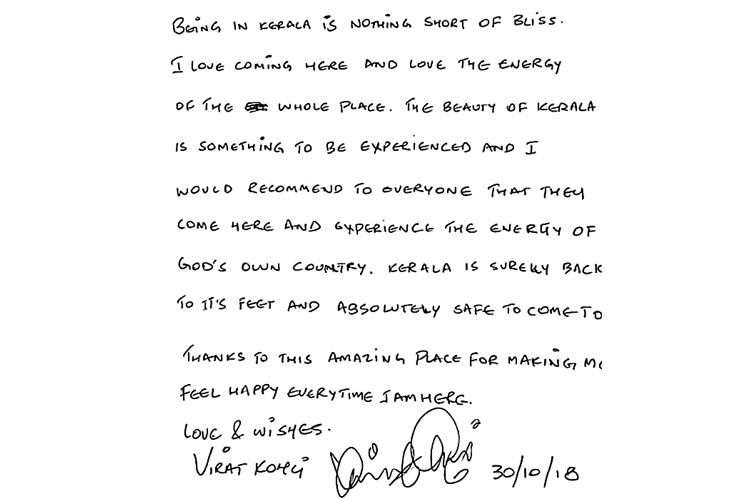 BEING IN KERALA IS NOTHING SHORT OF BLISS.
I LOVE COMING HERE AND LOVE THE ENERGY
OF THE WHOLE PLACE. THE BEAUTY OF KERALA
IS SOMETHING TO BE EXPERIENCED AND I
WOULD RECOMMEND TO EVERYONE THAT THEY
COME HERE AND EXPERIENCE THE ENERGY OF
GOD'S OWN COUNTRY. KERALA IS SURELY BACK
TO IT'S FEET AND ABSOLUTELY SAFE TO COME TO
THANKS TO THIS AMAZING PLACE FOR MAKING M
FEEL HAPPY EVERYTIME I AM HERE.
LOVE & WISHES.
VIRAT KOHLI 30/10/18